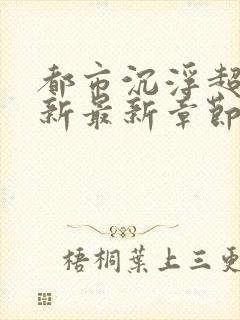 都市沉浮超
新最新章节
梧桐葉上三更